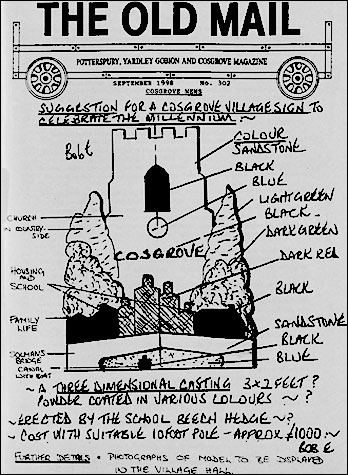 THE OLD MAIL
POTTERSPURY, YARDLEY GOBION AND COSGROVE MAGAZINE
SEPTEMBER 1998 No. 302
COSGROVE NEWS
SUGGESTION FOR A COSGROVE VILLAGE SIGN TO
CELEBRATE THE MILLENNIUM ~
BobE
COLOUR
SANDSTONE
BLACK
BLUE
LIGHT GREEN
BLACK
DARK GREEN
DARK RED
BLACK
SANDSTONE
BLACK
BLUE
CHURCH
IN COUNTRY-
SIDE
COSGROVE
HOUSING
AND
SCHOOL
FAMILY
LIFE
SOLMANS
BRIDGE
CANAL
WITH BOAT
~ A THREE DIMENSIONAL CASTING 3 x 2 FEET ?
POWDER COATED IN VARIOUS COLOURS ~ ?
~ ERECTED BY THE SCHOOL BEECH HEDGE ~ ?
~ COST WITH SUITABLE 10 FOOT POLE - APPROX £1000 :~
BOB E.
FURTHER DETAILS • PHOTOGRAPHS OF MODEL TO BE DISPLAYED
IN THE VILLAGE HALL.